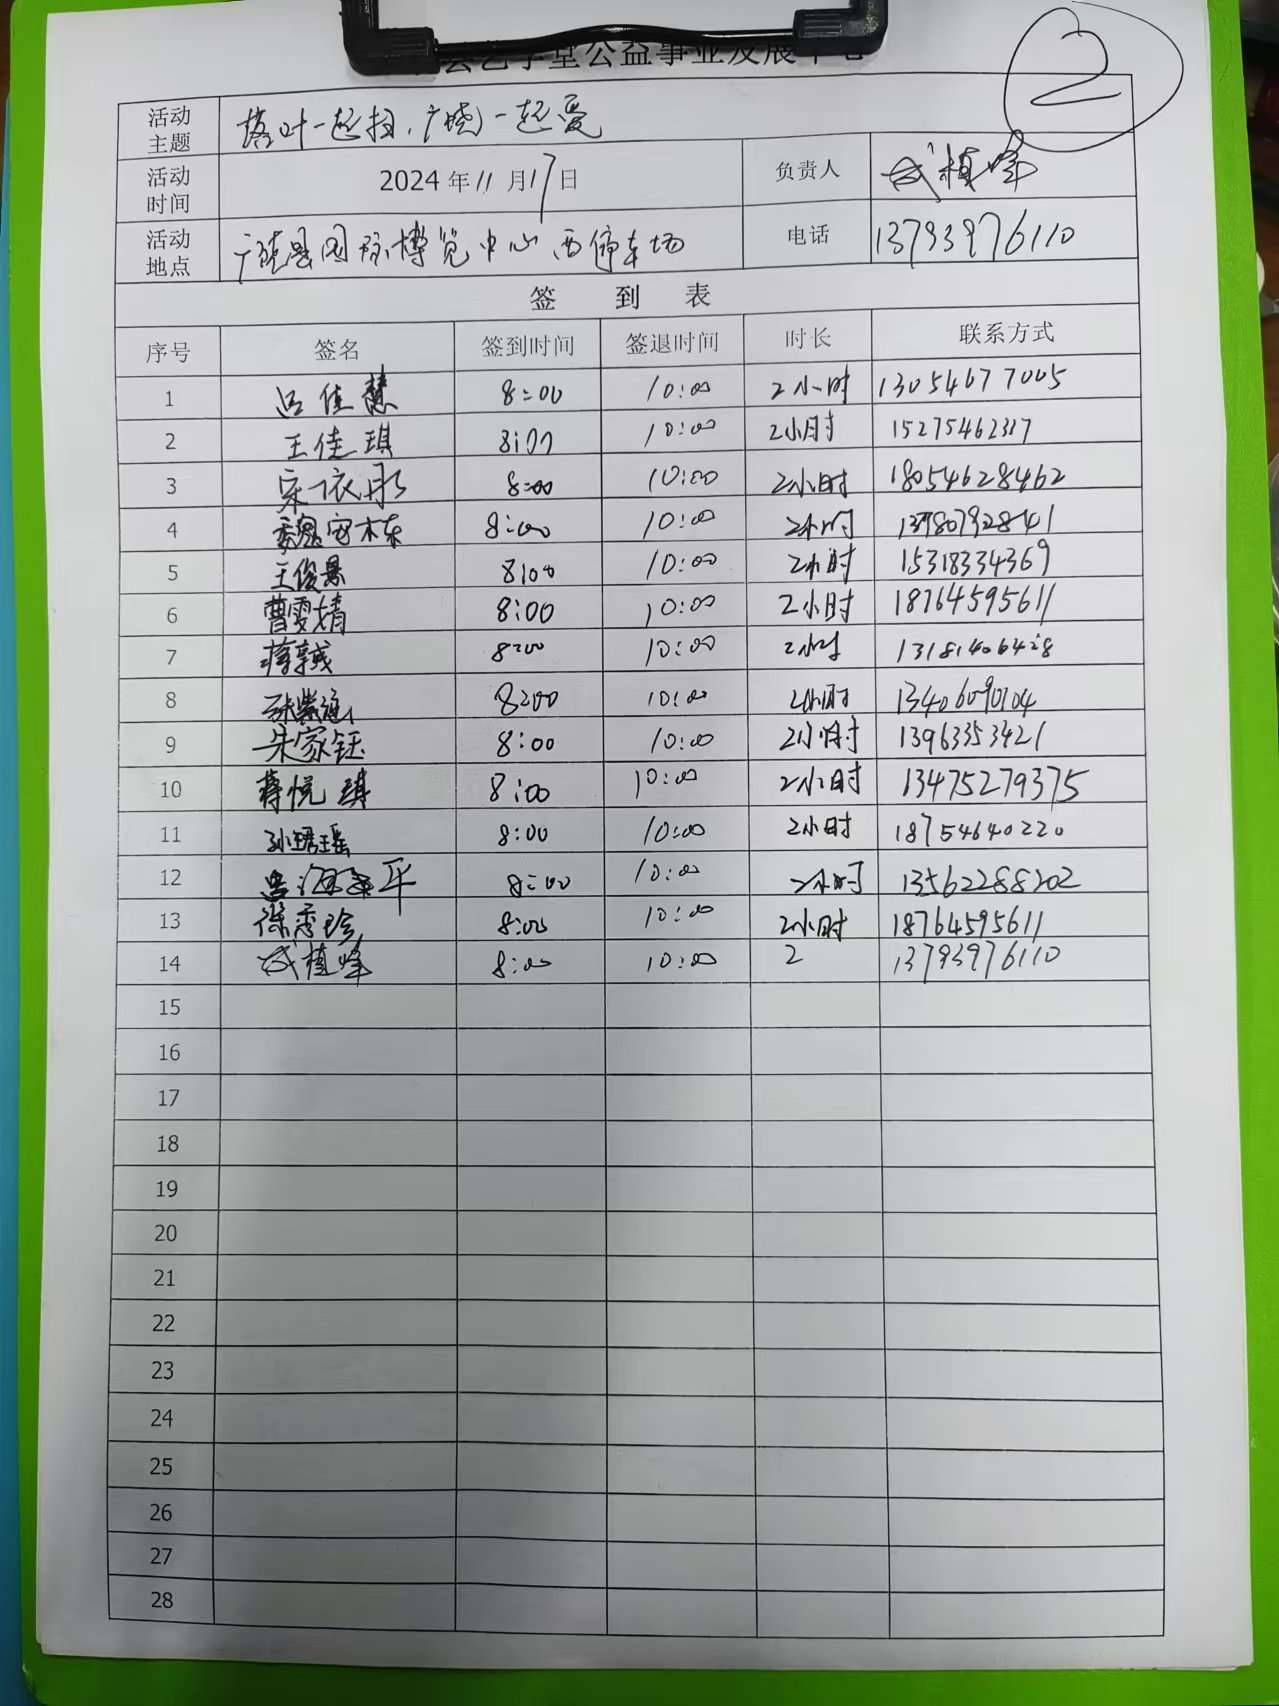 艺学堂公益事业发展中心
②
活动主题 落叶一起扫,广饶一起爱
活动时间 2024年11月17日 负责人 成植峰
活动地点 广饶县国际博览中心西停车场 电话 13793976110
签 到 表
序号 签名 签到时间 签退时间 时长 联系方式
1 吕佳慧 8:00 10:00 2小时 13054677005
2 王佳琪 8:00 10:00 2小时 15275462317
3 宋依彤 8:00 10:00 2小时 18054628462
4 魏安栋 8:00 10:00 2小时
5 王俊景 8:00 10:00 2小时 15318334369
6 曹雯婧 8:00 10:00 2小时 18764595611
7 8:00 10:00 2小时 13181406428
8 8:00 10:00 2小时 13406090104
9 朱家钰 8:00 10:00 2小时 13963353421
10 蒋悦琪 8:00 10:00 2小时 13475279375
11 孙珺瑶 8:00 10:00 2小时 18754640220
12 8:00 10:00 2小时 13562288202
13 徐秀珍 8:00 10:00 2小时 18764595611
14 成植峰 8:00 10:00 2 13793976110
15
16
17
18
19
20
21
22
23
24
25
26
27
28